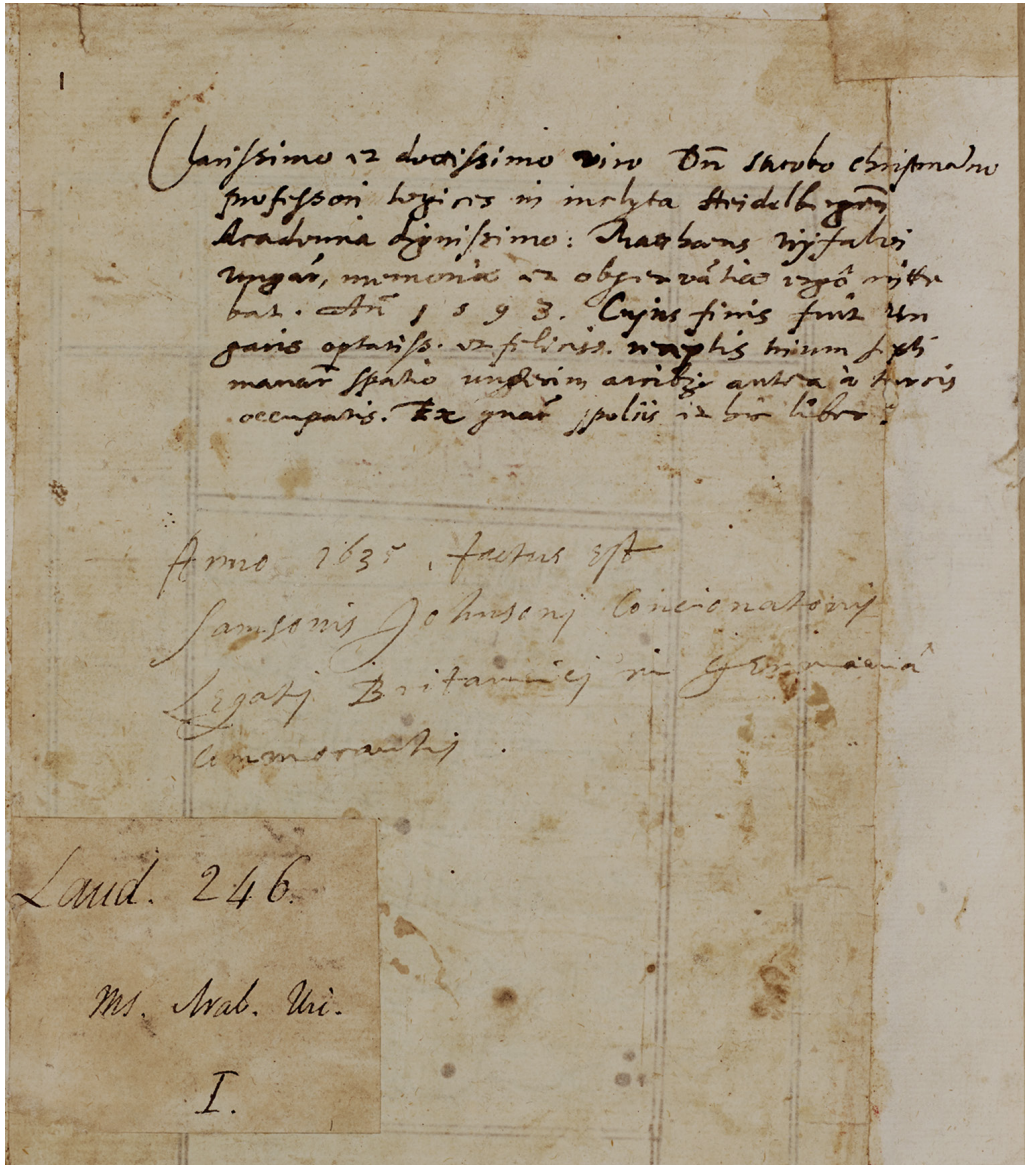 1
Clarissimo et doctissimo viro Dn̄ Iacobo Christmāno
professori logices in inclyta Heidelbergen̄
Academia dignissimo: Matthaeus Vyfalvi
Ungar, memoriae et observātiae ergô mitte
bat. An̄ 1593. Cujus finis fuit Un
garis optatiss. et feliciss. receptis trium septi
manar̄ spatio undecim arcibꝫ antea à Turcis
occupatis. Ex quar̄ spoliis et hic liber.
Anno 1635, factus est
Samsonis Johnsonj Concionatoris
Legatj Britannicj in Germaniâ
commorantis.
Laud. 246.
Ms. Arab. Uri.
I.